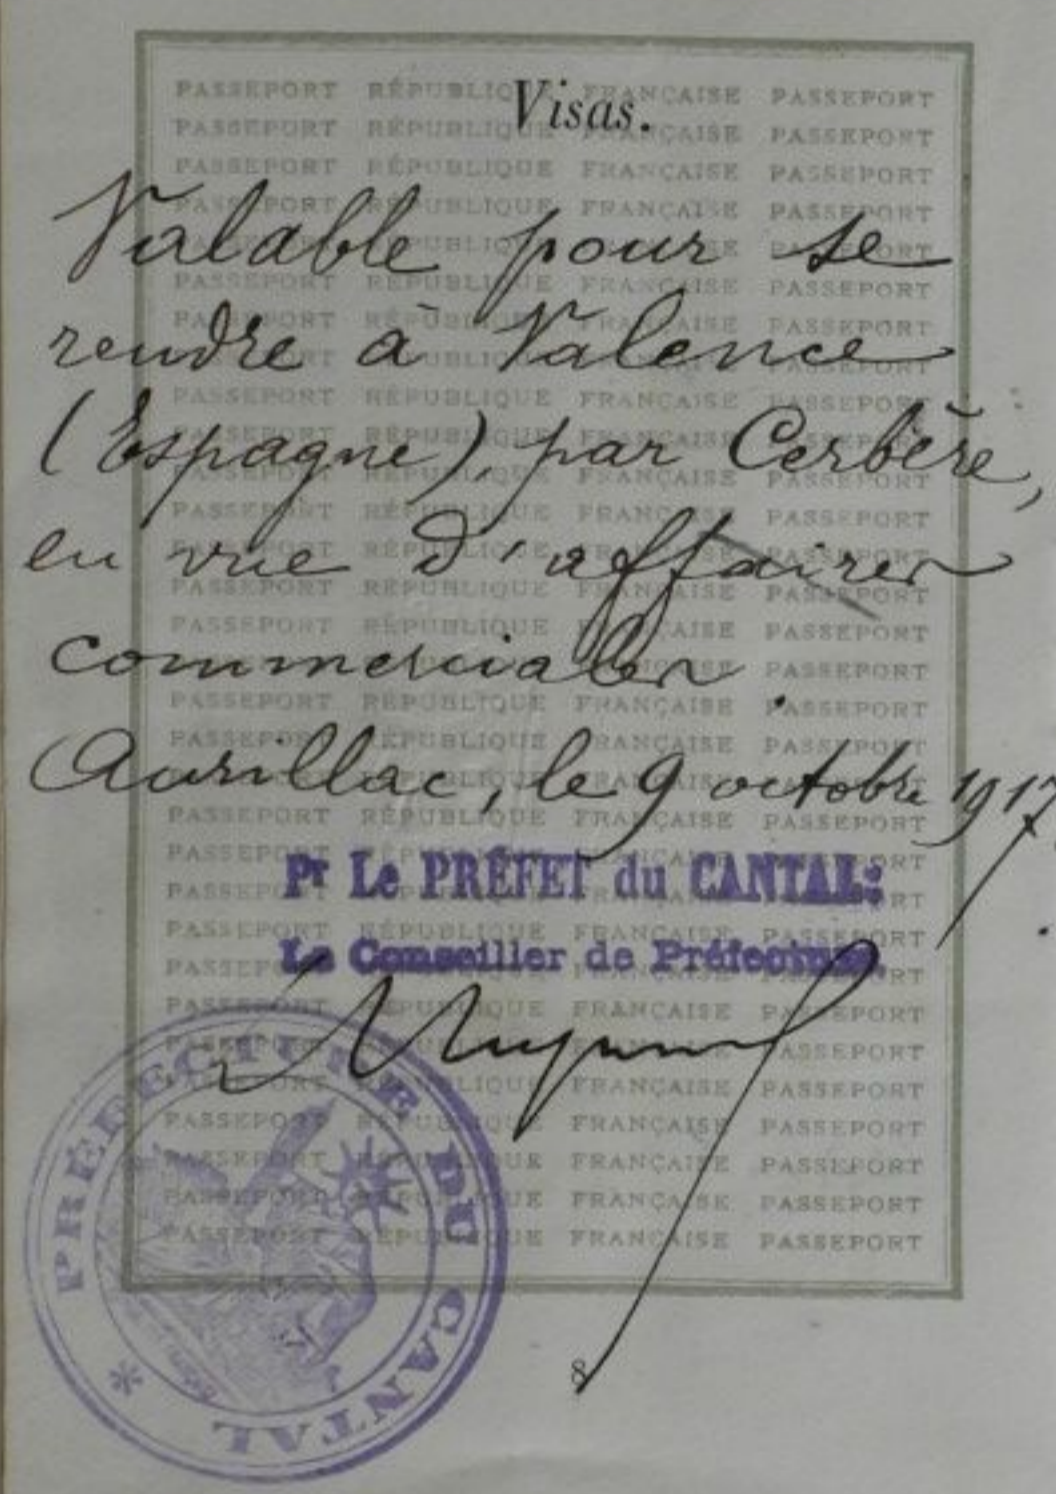 Visas.
PASSEPORT RÉPUBLIQUE FRANÇAISE PASSEPORT
Valable pour se
rendre à Valence
(Espagne) par Cerbère,
en vue d'affaires
commerciales.
Aurillac, le 9 octobre 1917.
Pr Le PRÉFET du CANTAL:
Le Conseiller de Préfecture,
PRÉFECTURE DU CANTAL
8